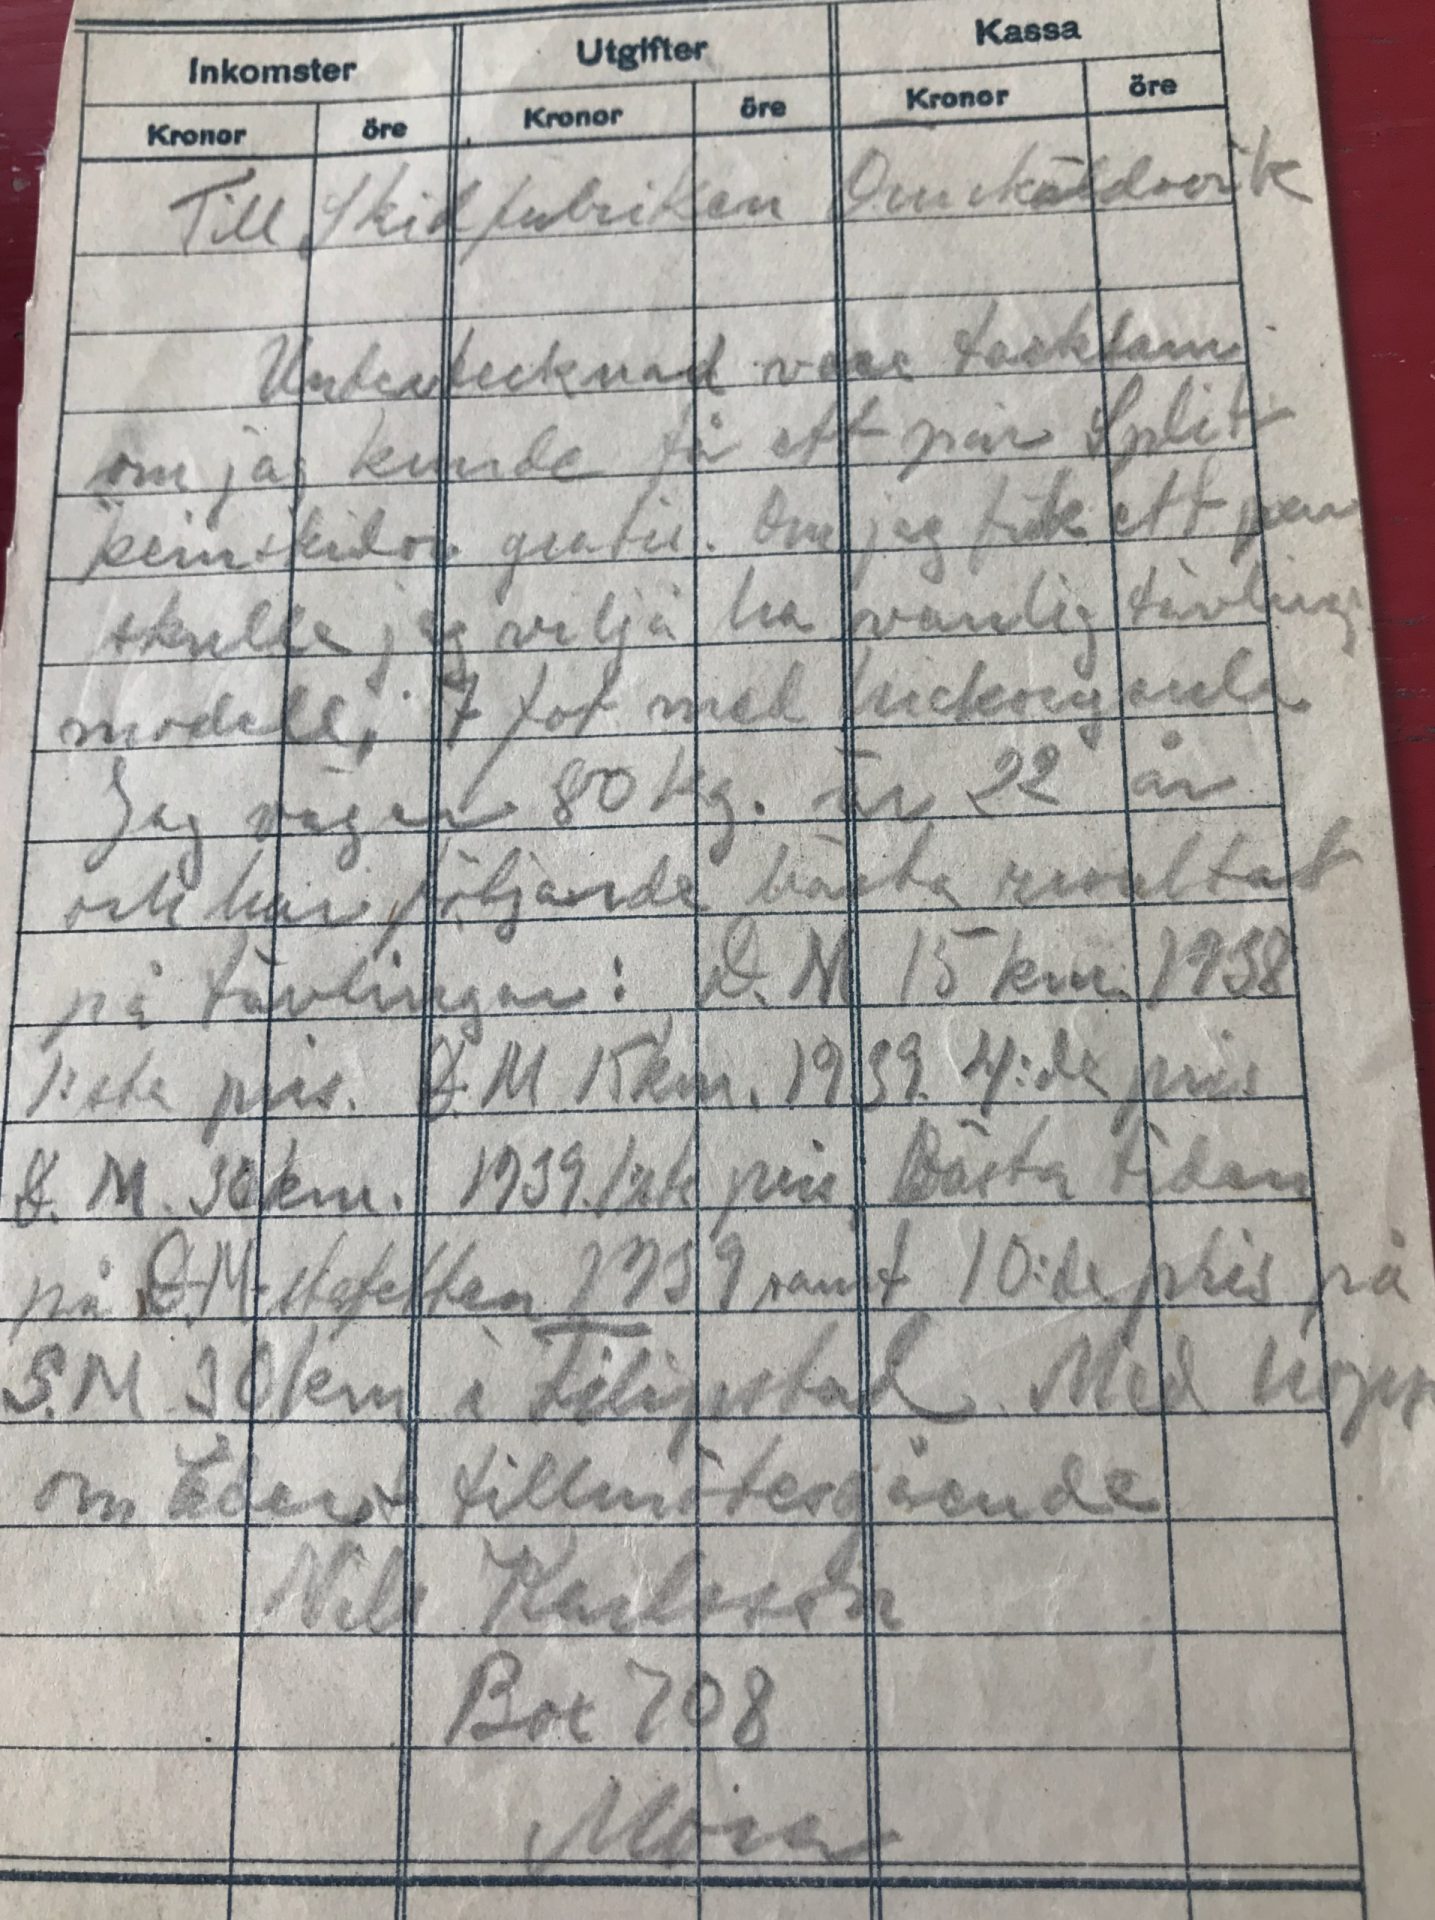 Inkomster Utgifter Kassa
Kronor öre Kronor öre Kronor öre
Till Skidfabriken Örnsköldsvik
Undertecknad vore tacksam
om jag kunde få ett par Split
keinskidor gratis. Om jag fick ett par
skulle jag vilja ha vanlig tävlings
modell, 7 fot med hickorysula.
Jag väger 80 kg. är 22 år
och har följande bästa resultat
på tävlingar: D.M 15 km. 1938
1:sta pris. D.M 15 km. 1939. 4:de pris
D.M. 30 km. 1939. 1:sta pris Bästa tiden
på D.M-stafetten 1939 samt 10:de pris på
S.M 30 km i Filipstad. Med hopp
om Edert tillmötesgående
Nils Karlsson
Box 708
Mora